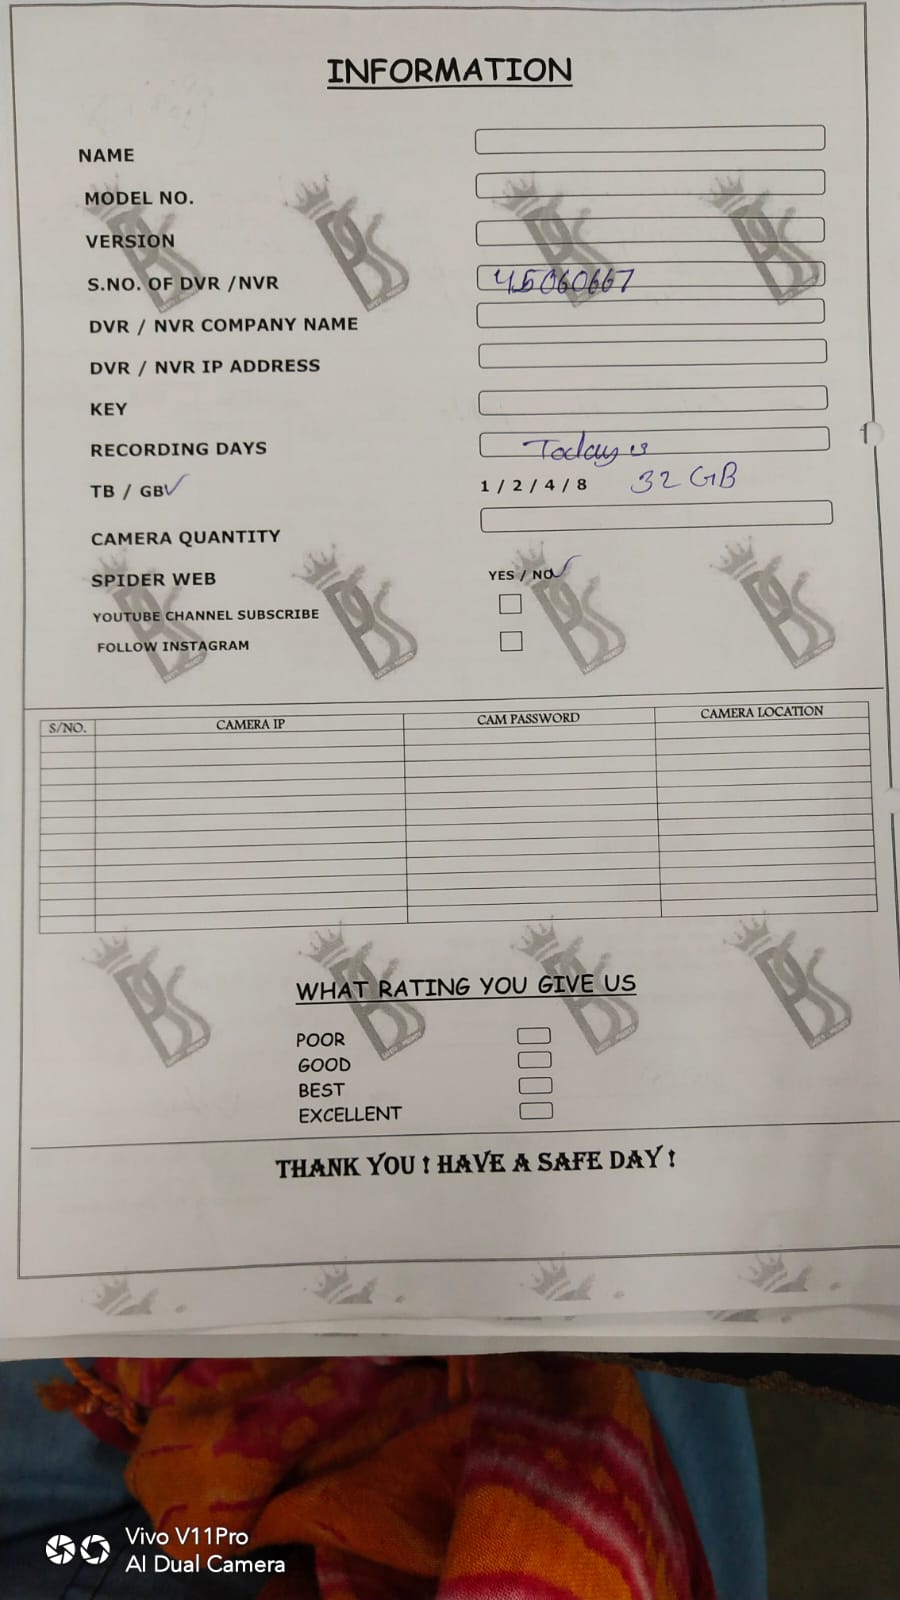 INFORMATION
NAME
MODEL NO.
VERSION
S.NO. OF DVR /NVR 45060667
DVR / NVR COMPANY NAME
DVR / NVR IP ADDRESS
KEY
RECORDING DAYS Today is
TB / GB✓ 1 / 2 / 4 / 8 32 GB
CAMERA QUANTITY
SPIDER WEB YES / NO✓
YOUTUBE CHANNEL SUBSCRIBE
FOLLOW INSTAGRAM
S/NO. CAMERA IP CAM PASSWORD CAMERA LOCATION
WHAT RATING YOU GIVE US
POOR
GOOD
BEST
EXCELLENT
THANK YOU ! HAVE A SAFE DAY !
Vivo V11Pro
AI Dual Camera